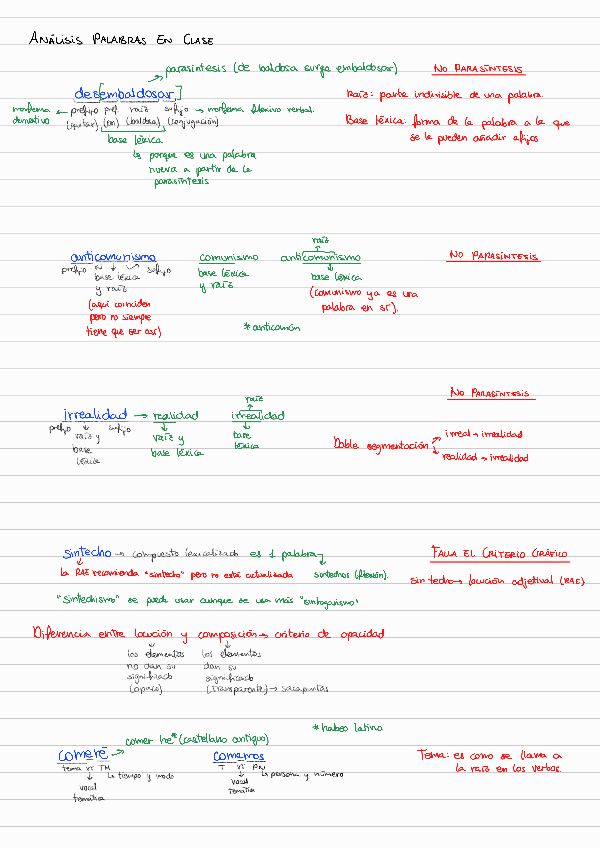 ANÁLISIS PALABRAS EN CLASE
parasíntesis (de baldosa surge embaldosar)
NO PARASÍNTESIS
desembaldosar
morfema derivativo ← prefijo pref raíz sufijo → morfema flexivo verbal.
(quitar) (en) (baldosa) (conjugación)
base léxica
↳ porque es una palabra
nueva a partir de la
parasíntesis
Raíz: parte indivisible de una palabra.
Base léxica: forma de la palabra a la que
se le pueden añadir afijos
anticomunismo
prefijo sufijo
base léxica
y raíz
(aquí coinciden
pero no siempre
tiene que ser así)
comunismo
base léxica
y raíz
raíz
anticomunismo
base léxica
(comunismo ya es una
palabra en sí).
* anticomún
NO PARASÍNTESIS
NO PARASÍNTESIS
irrealidad → realidad
prefijo sufijo
raíz y
base
léxica
raíz y
base léxica
raíz
irrealidad
base
léxica
Doble segmentación
irreal → irrealidad
realidad → irrealidad
sintecho → compuesto lexicalizado es 1 palabra
la RAE recomienda "sintecho" pero no está actualizada
sintechos (flexión).
"Sintechismo" se puede usar aunque se usa más "sinhogarismo"
FALLA EL CRITERIO GRÁFICO
sin techo → locución adjetival (RAE)
Diferencia entre locución y composición → criterio de opacidad
los elementos
no dan su
significado
(opaco)
los elementos
dan su
significado
(transparente) → sacapuntas
comer he* (castellano antiguo)
* habeo latino
comeré
tema VT TM
↳ tiempo y modo
vocal
temática
comemos
T VT PN
↳ persona y número
vocal
temática
Tema: es como se llama a
la raíz en los verbos.